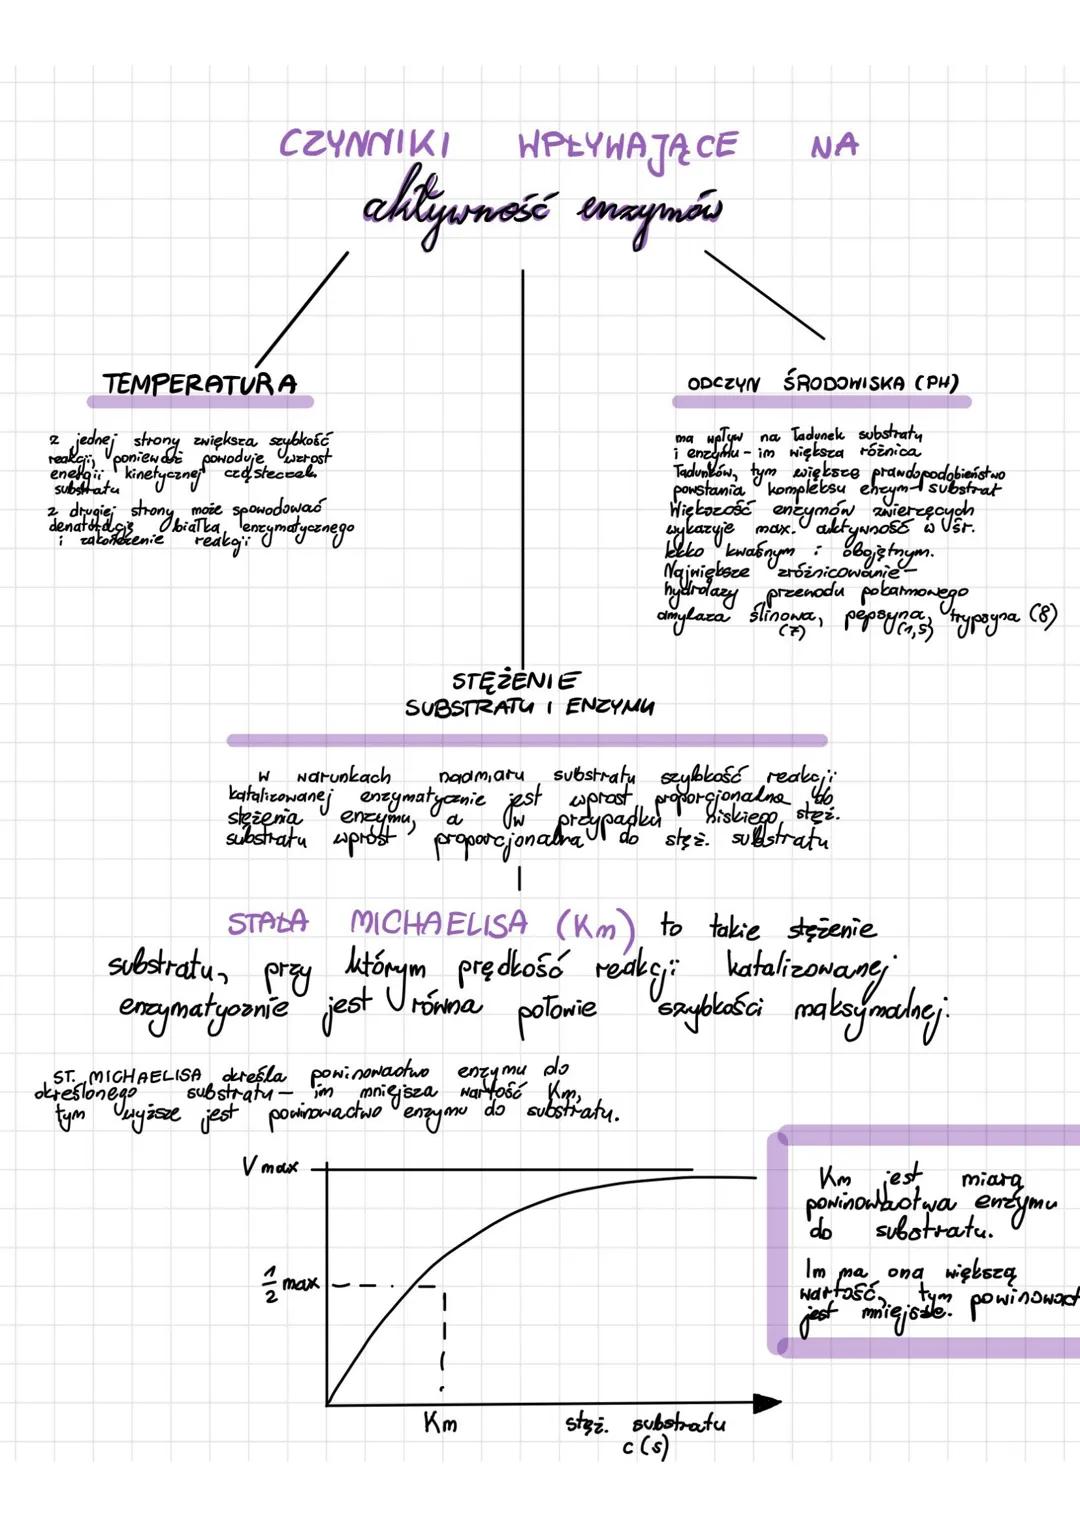 CZYNNIKI WPŁYWAJĄCE NA
aktywność enzymów
TEMPERATURA
z jednej strony zwiększa szybkość
reakcji, ponieważ powoduje wzrost
energii kinetycznej cząsteczek
substratu
z drugiej strony może spowodować
denaturację białka enzymatycznego
i zakończenie reakcji
ODCZYN ŚRODOWISKA (PH)
ma wpływ na ładunek substratu
i enzymu - im większa różnica
ładunków, tym większe prawdopodobieństwo
powstania kompleksu enzym-substrat
Większość enzymów zwierzęcych
wykazuje max. aktywność w śr.
lekko kwaśnym i obojętnym.
Największe zróżnicowanie -
hydrolazy przewodu pokarmowego
amylaza ślinowa, pepsyna, trypsyna (8)
(7) (1,5)
STĘŻENIE
SUBSTRATU I ENZYMU
W warunkach nadmiaru substratu szybkość reakcji
katalizowanej enzymatycznie jest wprost proporcjonalna do
stężenia enzymu, a w przypadku niskiego stęż.
substratu wprost proporcjonalna do stęż. substratu
STAŁA MICHAELISA (Km) to takie stężenie
substratu, przy którym prędkość reakcji katalizowanej
enzymatycznie jest równa połowie szybkości maksymalnej.
ST. MICHAELISA określa powinowactwo enzymu do
określonego substratu - im mniejsza wartość Km,
tym wyższe jest powinowactwo enzymu do substratu.
V max
1/2 max
Km
stęż. substratu
c (s)
Km jest miarą
powinowactwa enzymu
do substratu.
Im ma ona większą
wartość, tym powinowact
jest mniejsze.